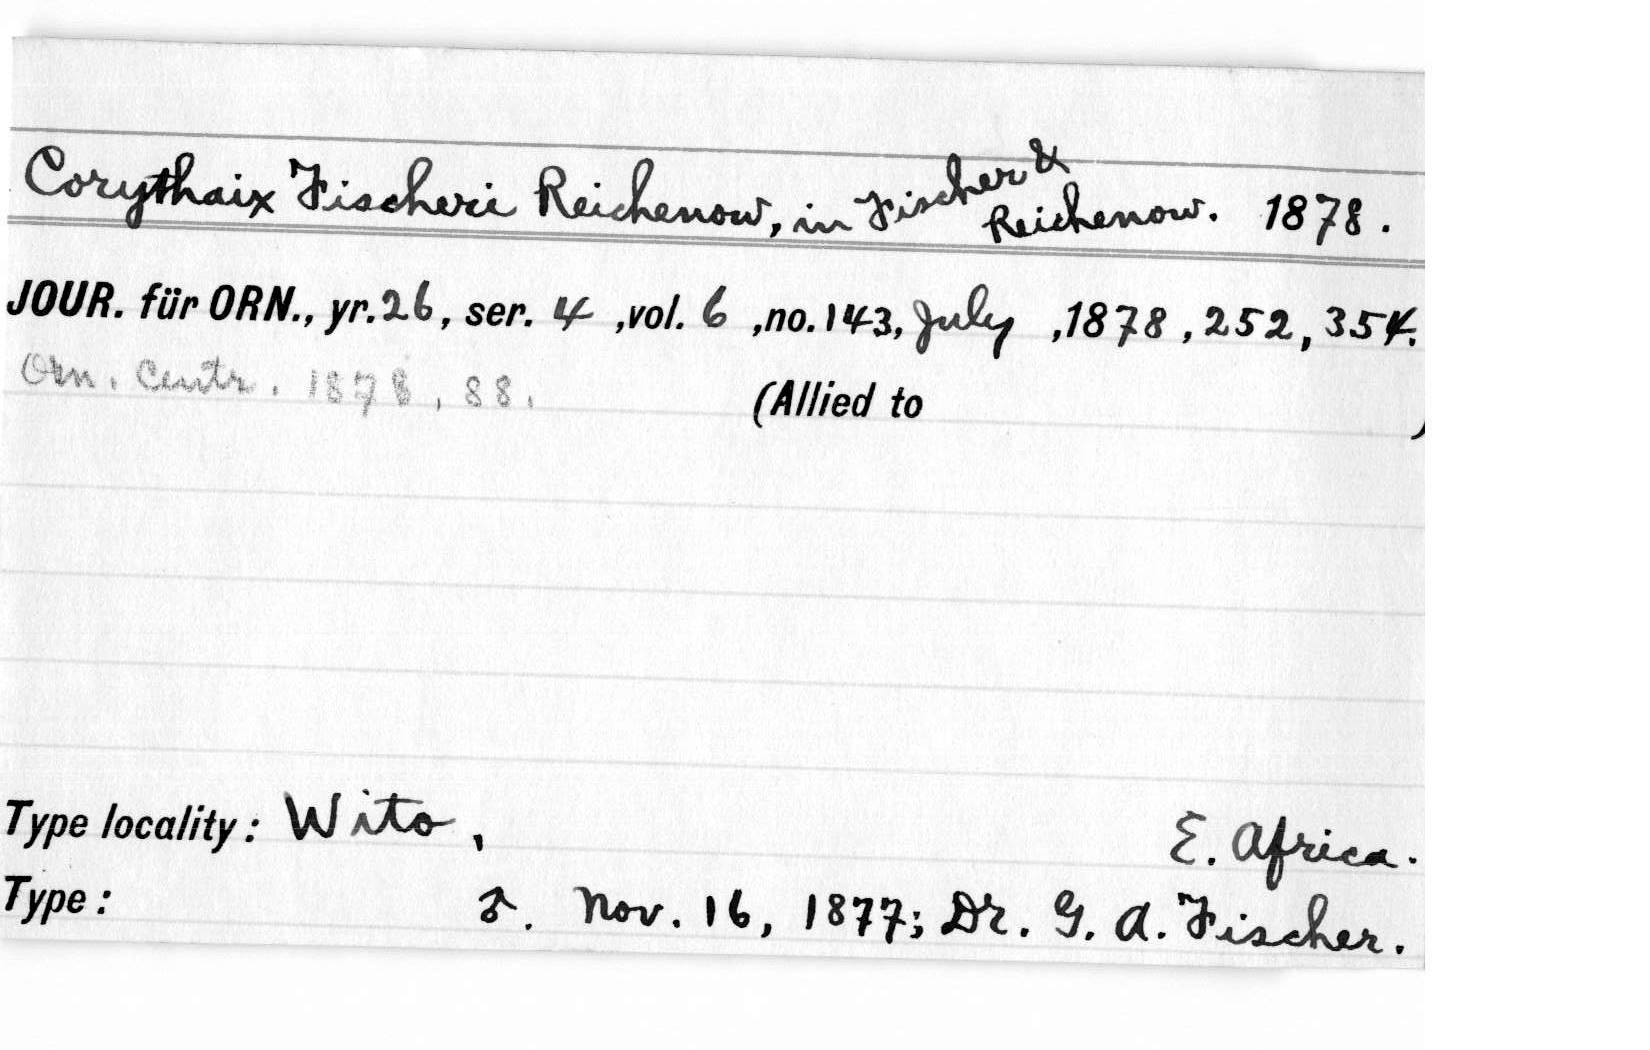 Corythaix Fischeri Reichenow, in Fischer &
Reichenow. 1878.
JOUR. für ORN., yr. 26, ser. 4 ,vol. 6 ,no. 143, July ,1878 , 252, 354.
Orn. Centr. 1878, 88.
(Allied to )
Type locality: Wito, E. Africa.
Type: ♂. Nov. 16, 1877; Dr. G. A. Fischer.